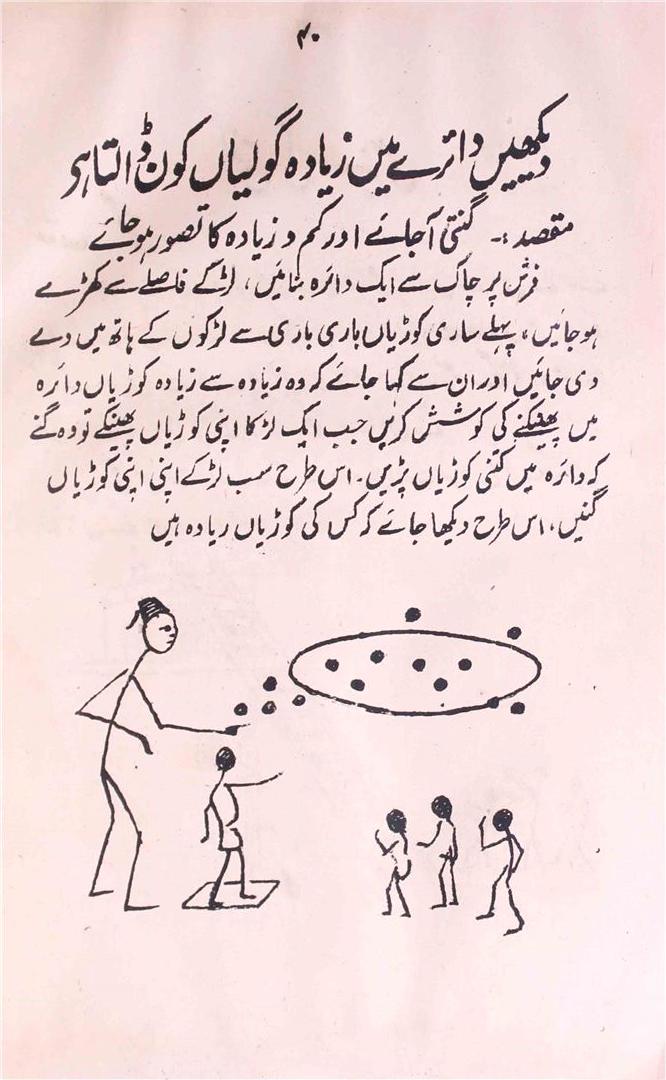 ۴۰
دیکھیں دائرے میں زیادہ گولیاں کون ڈالتا ہے
مقصد:۔ گنتی آجائے اور کم و زیادہ کا تصور ہوجائے
فرش پر چاک سے ایک دائرہ بنائیں، لڑکے فاصلے سے کھڑے
ہوجائیں، پہلے ساری کوڑیاں باری باری سے لڑکوں کے ہاتھ میں دے
دی جائیں اور ان سے کہا جائے کہ وہ زیادہ سے زیادہ کوڑیاں دائرہ
میں پھینکنے کی کوشش کریں جب ایک لڑکا اپنی کوڑیاں پھینکے تو وہ گنے
کہ دائرہ میں کتنی کوڑیاں پڑیں۔ اس طرح سب لڑکے اپنی اپنی کوڑیاں
گنیں، اس طرح دیکھا جائے کہ کس کی کوڑیاں زیادہ ہیں